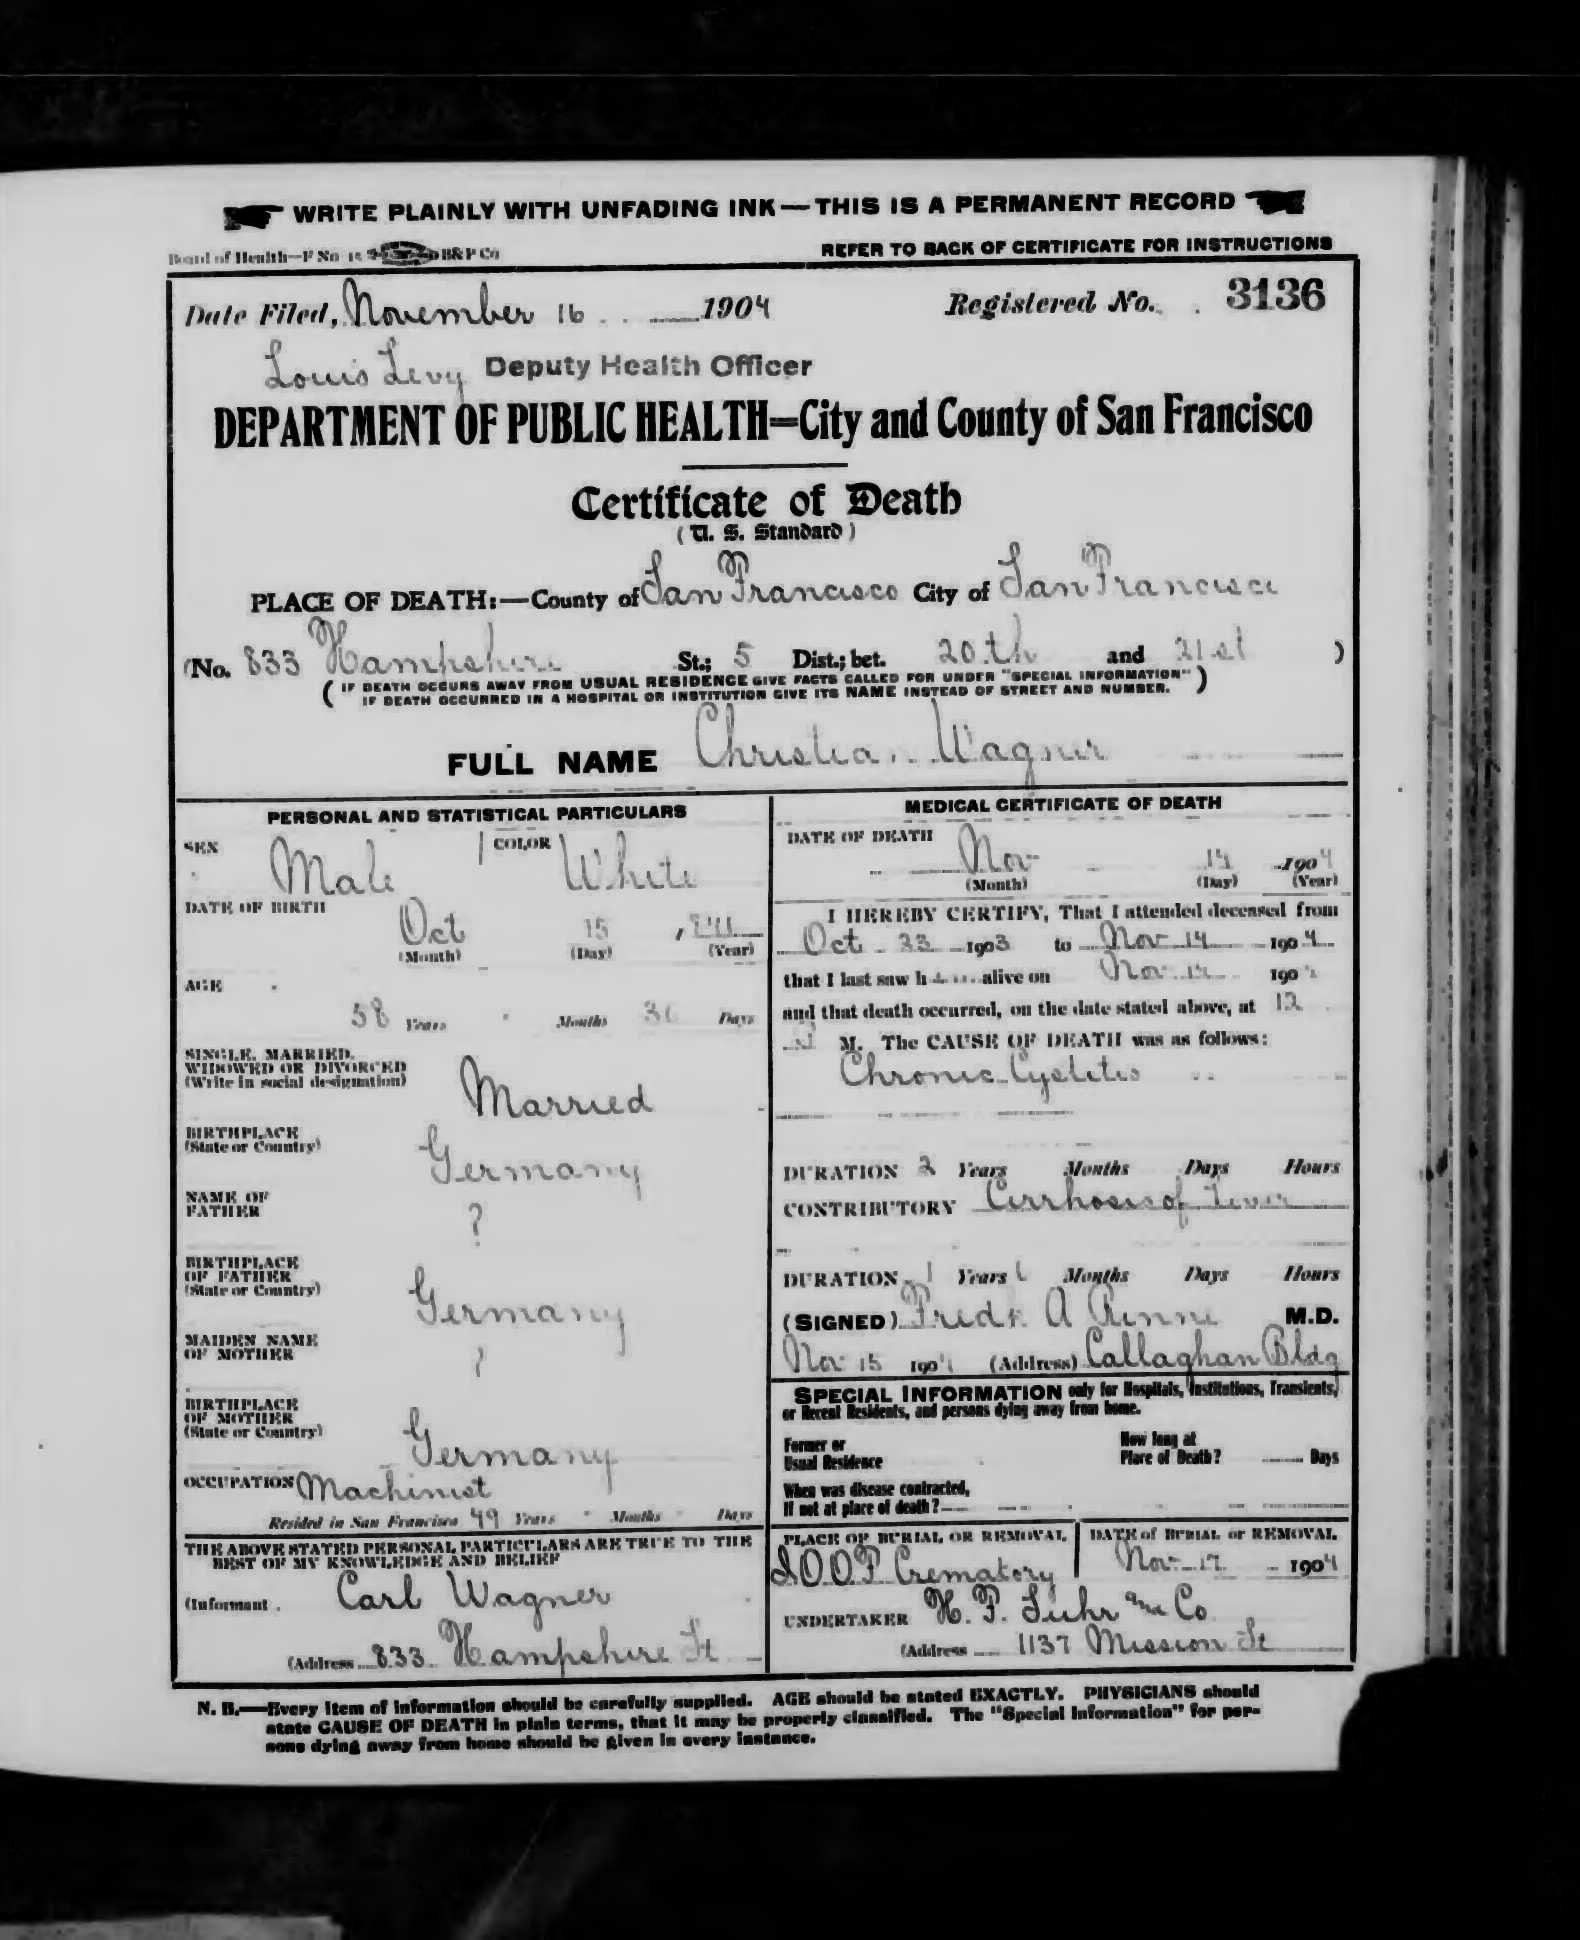 WRITE PLAINLY WITH UNFADING INK—THIS IS A PERMANENT RECORD
Board of Health—F No 15 B&P Co REFER TO BACK OF CERTIFICATE FOR INSTRUCTIONS
Date Filed, November 16 1904 Registered No. 3136
Louis Levy Deputy Health Officer
DEPARTMENT OF PUBLIC HEALTH=City and County of San Francisco
Certificate of Death
(U. S. Standard)
PLACE OF DEATH:—County of San Francisco City of San Francisco
(No. 833 Hampshire St.; 5 Dist.; bet. 20.th and 21st )
(IF DEATH OCCURS AWAY FROM USUAL RESIDENCE GIVE FACTS CALLED FOR UNDER "SPECIAL INFORMATION"
IF DEATH OCCURRED IN A HOSPITAL OR INSTITUTION GIVE ITS NAME INSTEAD OF STREET AND NUMBER.)
FULL NAME Christian Wagner
PERSONAL AND STATISTICAL PARTICULARS
SEX Male COLOR White
DATE OF BIRTH Oct 15
(Month) (Day) (Year)
AGE
58 Years Months Days
SINGLE, MARRIED,
WIDOWED OR DIVORCED
(Write in social designation) Married
BIRTHPLACE
(State or Country) Germany
NAME OF
FATHER ?
BIRTHPLACE
OF FATHER
(State or Country) Germany
MAIDEN NAME
OF MOTHER ?
BIRTHPLACE
OF MOTHER
(State or Country) Germany
OCCUPATION Machinist
Resided in San Francisco 49 Years Months Days
THE ABOVE STATED PERSONAL PARTICULARS ARE TRUE TO THE
BEST OF MY KNOWLEDGE AND BELIEF
(Informant Carl Wagner
(Address 833 Hampshire St
MEDICAL CERTIFICATE OF DEATH
DATE OF DEATH Nov 14 1904
(Month) (Day) (Year)
I HEREBY CERTIFY, That I attended deceased from
Oct 23 1903 to Nov 14 1904
that I last saw h alive on Nov 190
and that death occurred, on the date stated above, at 12
M. The CAUSE OF DEATH was as follows:
Chronic Cystitis
DURATION 2 Years Months Days Hours
CONTRIBUTORY Cirrhosis of Liver
DURATION 1 Years Months Days Hours
(SIGNED) Fredk A Rinne M.D.
Nov 15 1904 (Address) Callaghan Bldg
SPECIAL INFORMATION only for Hospitals, Institutions, Transients,
or Recent Residents, and persons dying away from home.
Former or
Usual Residence
How long at
Place of Death? Days
When was disease contracted,
If not at place of death?
PLACE OF BURIAL OR REMOVAL DATE of BURIAL or REMOVAL
I.O.O.F Crematory Nov 17 1904
UNDERTAKER H. F. Suhr and Co
(Address 1137 Mission St
N. B.—Every item of information should be carefully supplied. AGE should be stated EXACTLY. PHYSICIANS should
state CAUSE OF DEATH in plain terms, that it may be properly classified. The "Special Information" for per-
sons dying away from home should be given in every instance.